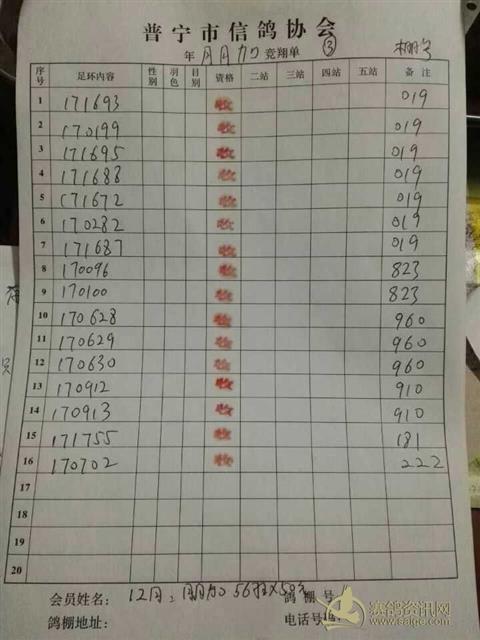 普宁市信鸽协会
年 月月加 竞翔单 ③ 棚号
序号 足环内容 性别 羽色 目别 资格 二站 三站 四站 五站 备注
1 171693 收 019
2 170199 收 019
3 171695 收 019
4 171688 收 019
5 171672 收 019
6 170282 收 019
7 171687 收 019
8 170096 收 823
9 170100 收 823
10 170628 收 960
11 170629 收 960
12 170630 收 960
13 170912 收 910
14 170913 收 910
15 171755 收 181
16 170702 收 222
17
18
19
20
会员姓名： 12月： 加 56 鸽棚号
鸽棚地址： 电话号
赛鸽资讯网
www.saigc.com